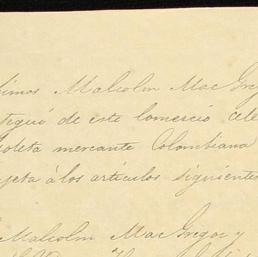 simos Malcolm Mac Greg
tiguó de este Comercio cele
goleta mercante Colombiana
jeta á los artículos siguientes
Malcolm Mac Gregor y